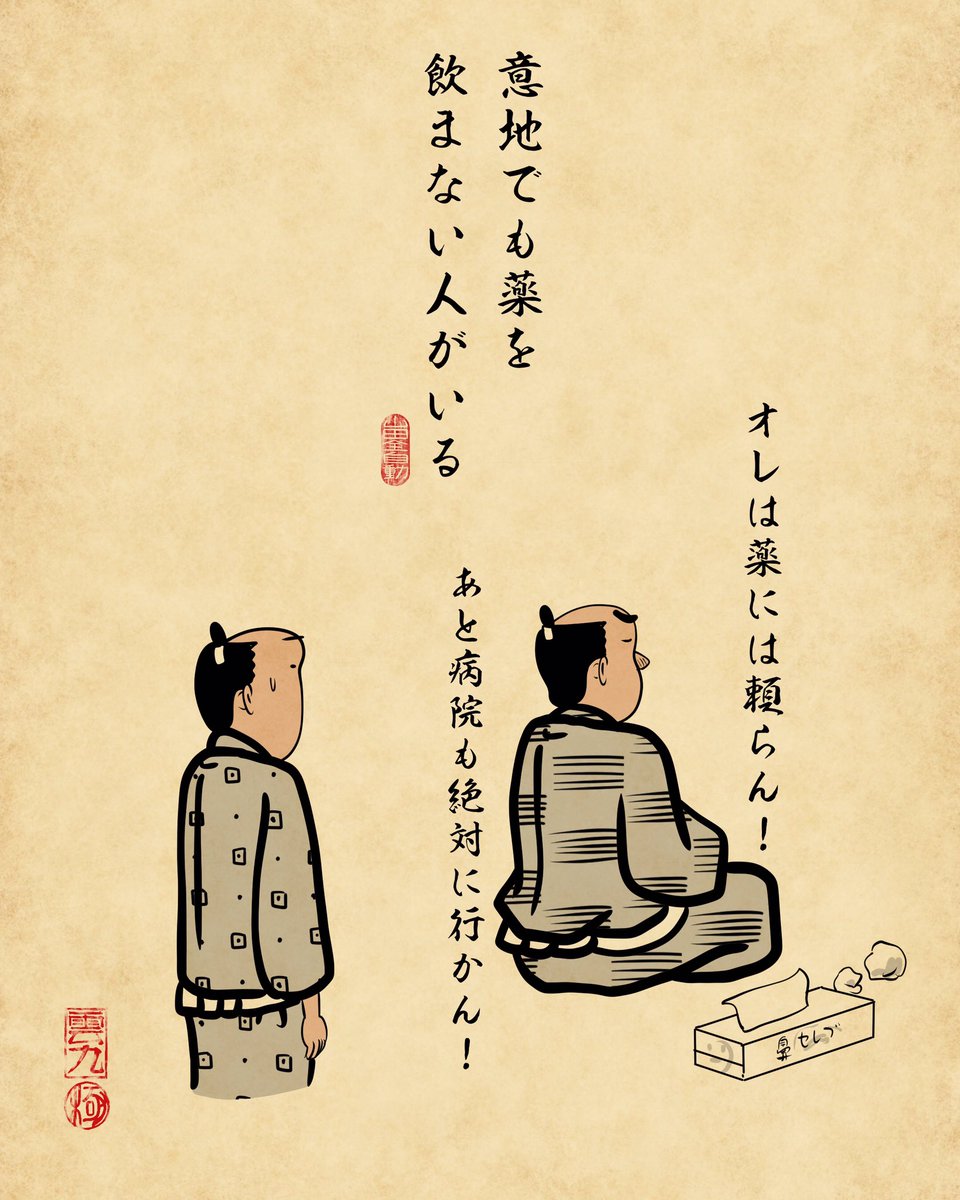 意地でも薬を
飲まない人がいる
オレは薬には頼らん！
あと病院も絶対に行かん！
鼻セレブ